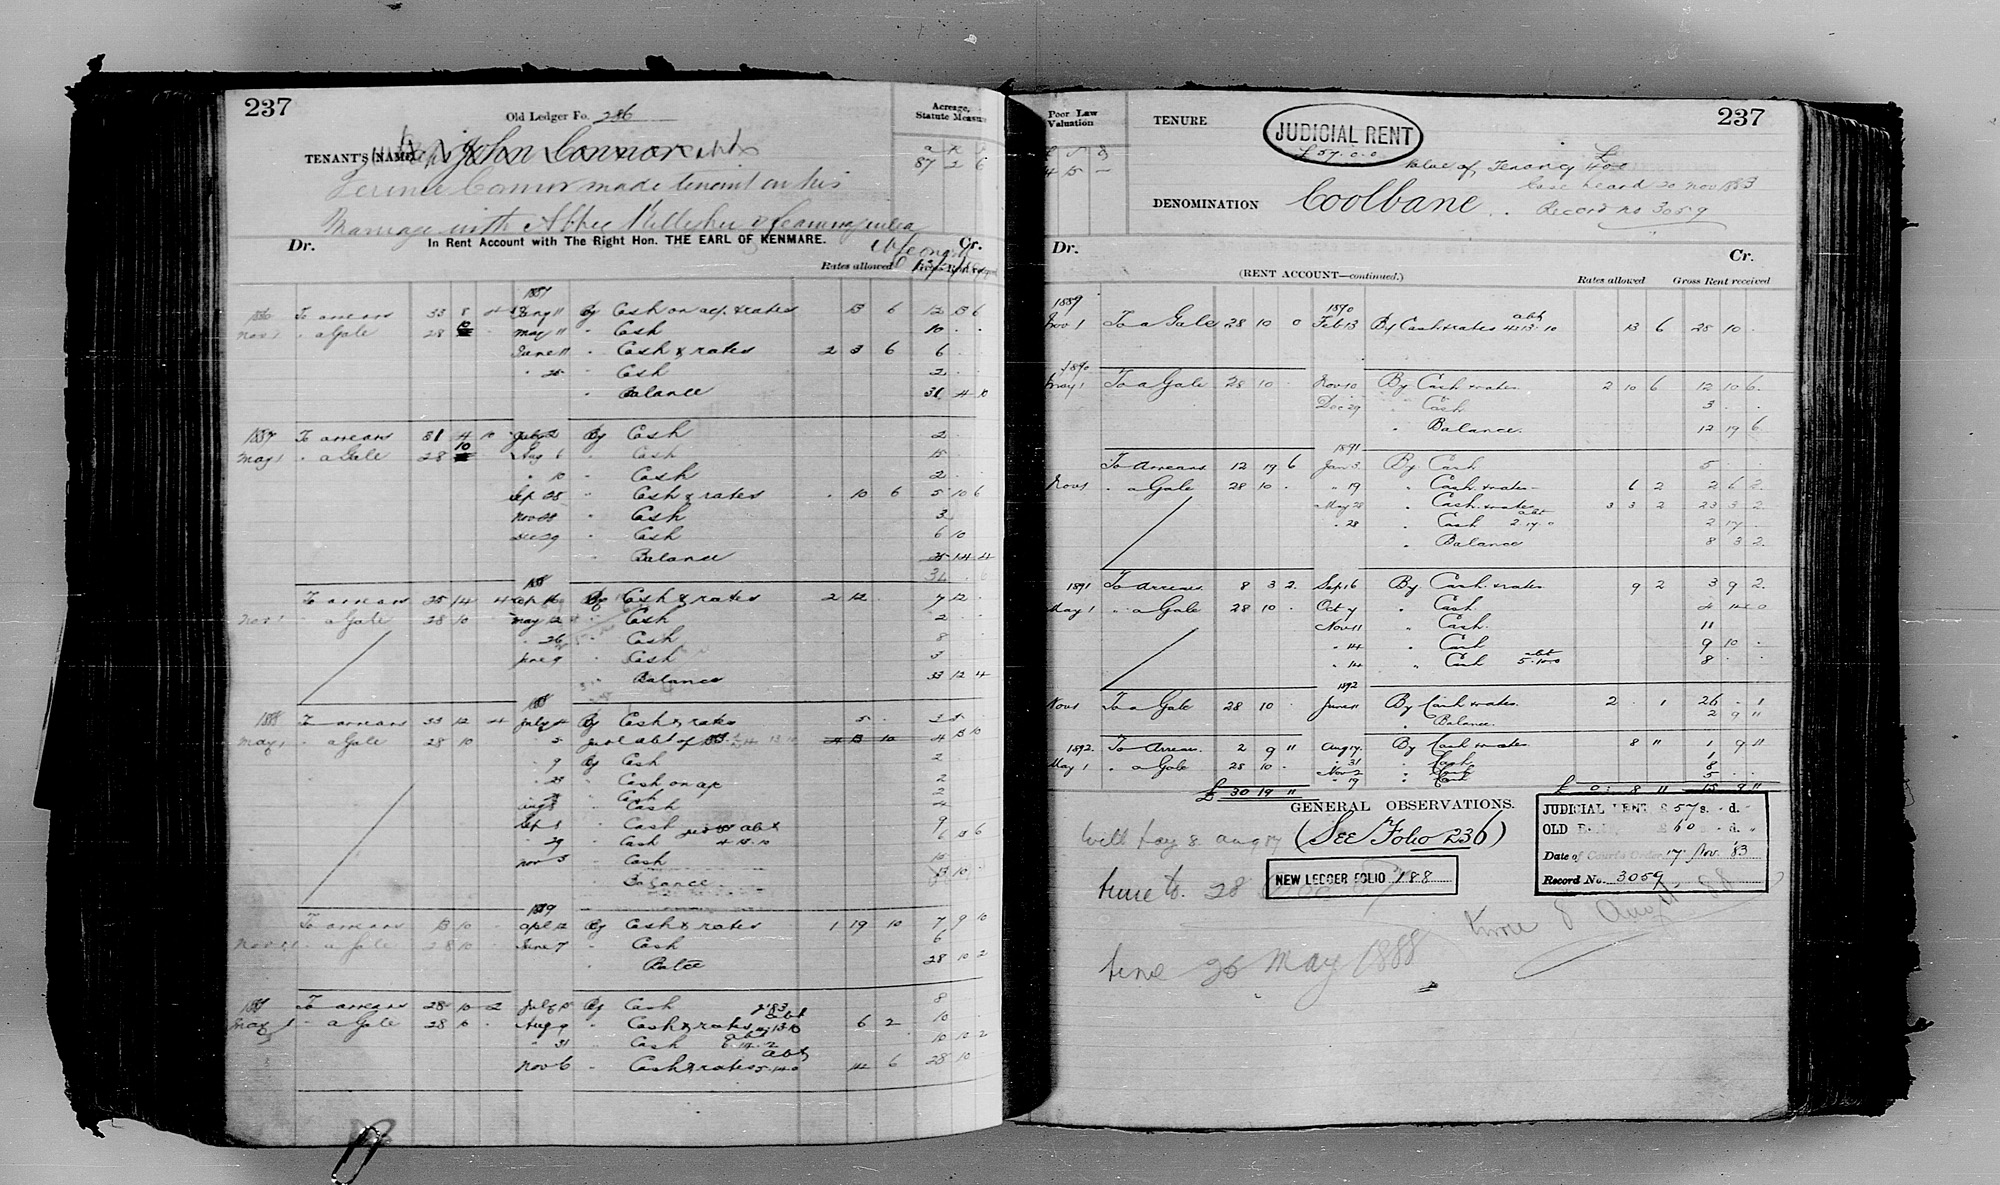 237
Old Ledger Fo. 286
Acreage, Statute Measure
TENANT'S NAME John Connor
a r p
87 2 6
Connor made tenant on his
Marriage with Abbee Kelleher of
Dr. In Rent Account with The Right Hon. THE EARL OF KENMARE. Cr.
Rates allowed Gross Rent received
1887
To arrears 33 8 4 By Cash on ac. & rates 13 6 12 13 6
Nov 1 " a Gale 28 10 May 11 " Cash 10 . .
June 11 " Cash & rates 2 3 6 6 . .
" 25 " Cash 2 . .
" Balance 31 4 10
1887 To arrears 31 4 10 July 2 By Cash 2 .
May 1 " a Gale 28 10 Aug 6 " Cash 15 .
" 10 " Cash 2 . .
Sep 05 " Cash & rates . 10 6 5 10 6
Nov " Cash 3
Dec 29 " Cash 6 10
" Balance 25 14 4
To arrears 25 14 4 By Cash & rates 2 12 . 7 12 .
Nov 1 " a Gale 28 10 . May 12 " Cash 2 .
" 26 " Cash 8
June 9 " Cash 3
" Balance 33 12 4
1888 To arrears 33 12 4 July 4 By Cash & rates 5 .
May 1 " a Gale 28 10 " 5 abt of 4 13 10 4 13 10
" 9 By Cash 2
" 23 " Cash on ac 2
" Cash 2
Aug " Cash 4
Sep 1 " Cash 9
" 29 " Cash abt 4 13 10
Nov 5 " Cash 10
" Balance 13 10
1889
To arrears 13 10 . Apl 12 By Cash & rates 1 19 10 7 9 10
Nov 1 " a Gale 28 10 June 7 " Cash 6
" Balce 28 10 2
To arrears 28 10 2 July By Cash 8
May 1 " a Gale 28 10 . Aug 9 " Cash & rates abt 6 2 10
" 31 " Cash abt 10 10 2
Nov 6 " Cash & rates abt 5.14.0 14 6 28 10
Poor Law Valuation
£ s d
15 —
TENURE
JUDICIAL RENT
£57.0.0
237
Value of Tenancy £
Case heard 20 Nov 1883
DENOMINATION Coolbane
Record No 3059
Dr. Cr.
(RENT ACCOUNT—continued.) Rates allowed Gross Rent received
1889 1890
Nov 1 To a Gale 28 10 0 Feb 13 By Cash & rates abt 4.13.10 13 6 28 10 .
1890
May 1 To a Gale 28 10 . Nov 10 By Cash & rates 2 10 6 12 10 6
Dec 29 " Cash 3 . .
" Balance. 12 19 6
1891
To Arrears 12 19 6 Jan 3 By Cash 5 . .
Nov 1 " a Gale 28 10 . " 19 " Cash & rates 6 2 2 6 2
May 28 " Cash & rates 3 3 2 23 3 2
" 28 " Cash abt 2.17.0 2 17 .
" Balance 8 3 2
1891 To Arrears 8 3 2 Sep 16 By Cash & rates 9 2 3 9 2
May 1 " a Gale 28 10 . Oct 7 " Cash 4 14 0
Nov 11 " Cash 11
" 14 " Cash 9 10 .
" 14 " Cash abt 5.10.0 8 . .
1892
Nov 1 To a Gale 28 10 . June 11 By Cash & rates 2 . 1 26 . 1
" Balance. 2 9 11
1892. To Arrears. 2 9 11 Aug 17 By Cash & rates 8 11 1 9 11
May 1 " a Gale 28 10 . " 31 " Cash 1
Nov 2 " Cash 8
" 19 " Cash 5
£ 30 19 11 £ 8 11 15 9 11
GENERAL OBSERVATIONS.
will pay 8 Aug 17 (See Folio 236)
JUDICIAL RENT £57 s. - d. -
OLD £60 - d. -
Date of Courts Order 17 Nov. '83
Record No. 3059
time to 28
NEW LEDGER FOLIO 188
time 8 Augt 88
time 26 May 1888